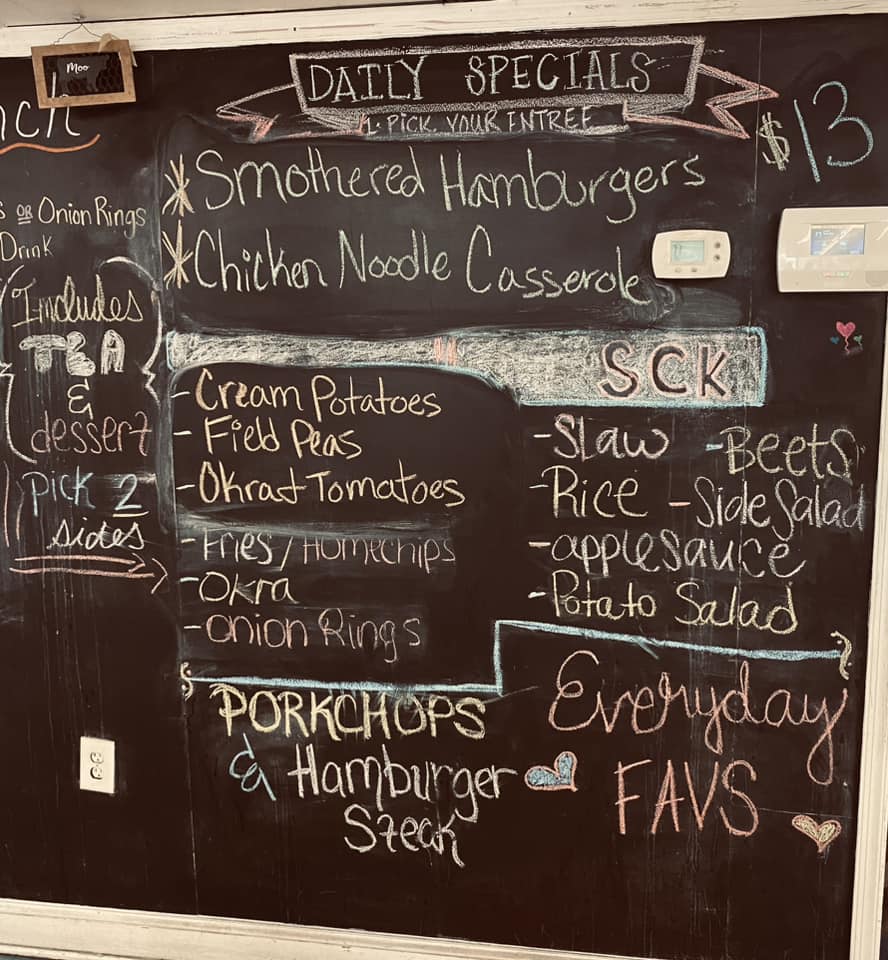 Moo
DAILY SPECIALS
1. PICK YOUR ENTREE
$13
* Smothered Hamburgers
* Chicken Noodle Casserole
OR Onion Rings
Drink
Includes
TEA
&
dessert
pick 2
sides
SCK
- Cream Potatoes
- Field Peas
- Okra + Tomatoes
- Fries / Homechips
- Okra
- Onion Rings
- Slaw - Beets
- Rice - Side Salad
- applesauce
- Potato Salad
PORKCHOPS
& Hamburger
Steak
Everyday
FAVS